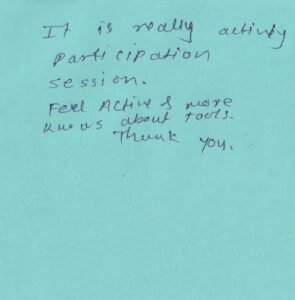 It is really activity
participation
session.
Feel Active & more
knows about tools.
Thank you.